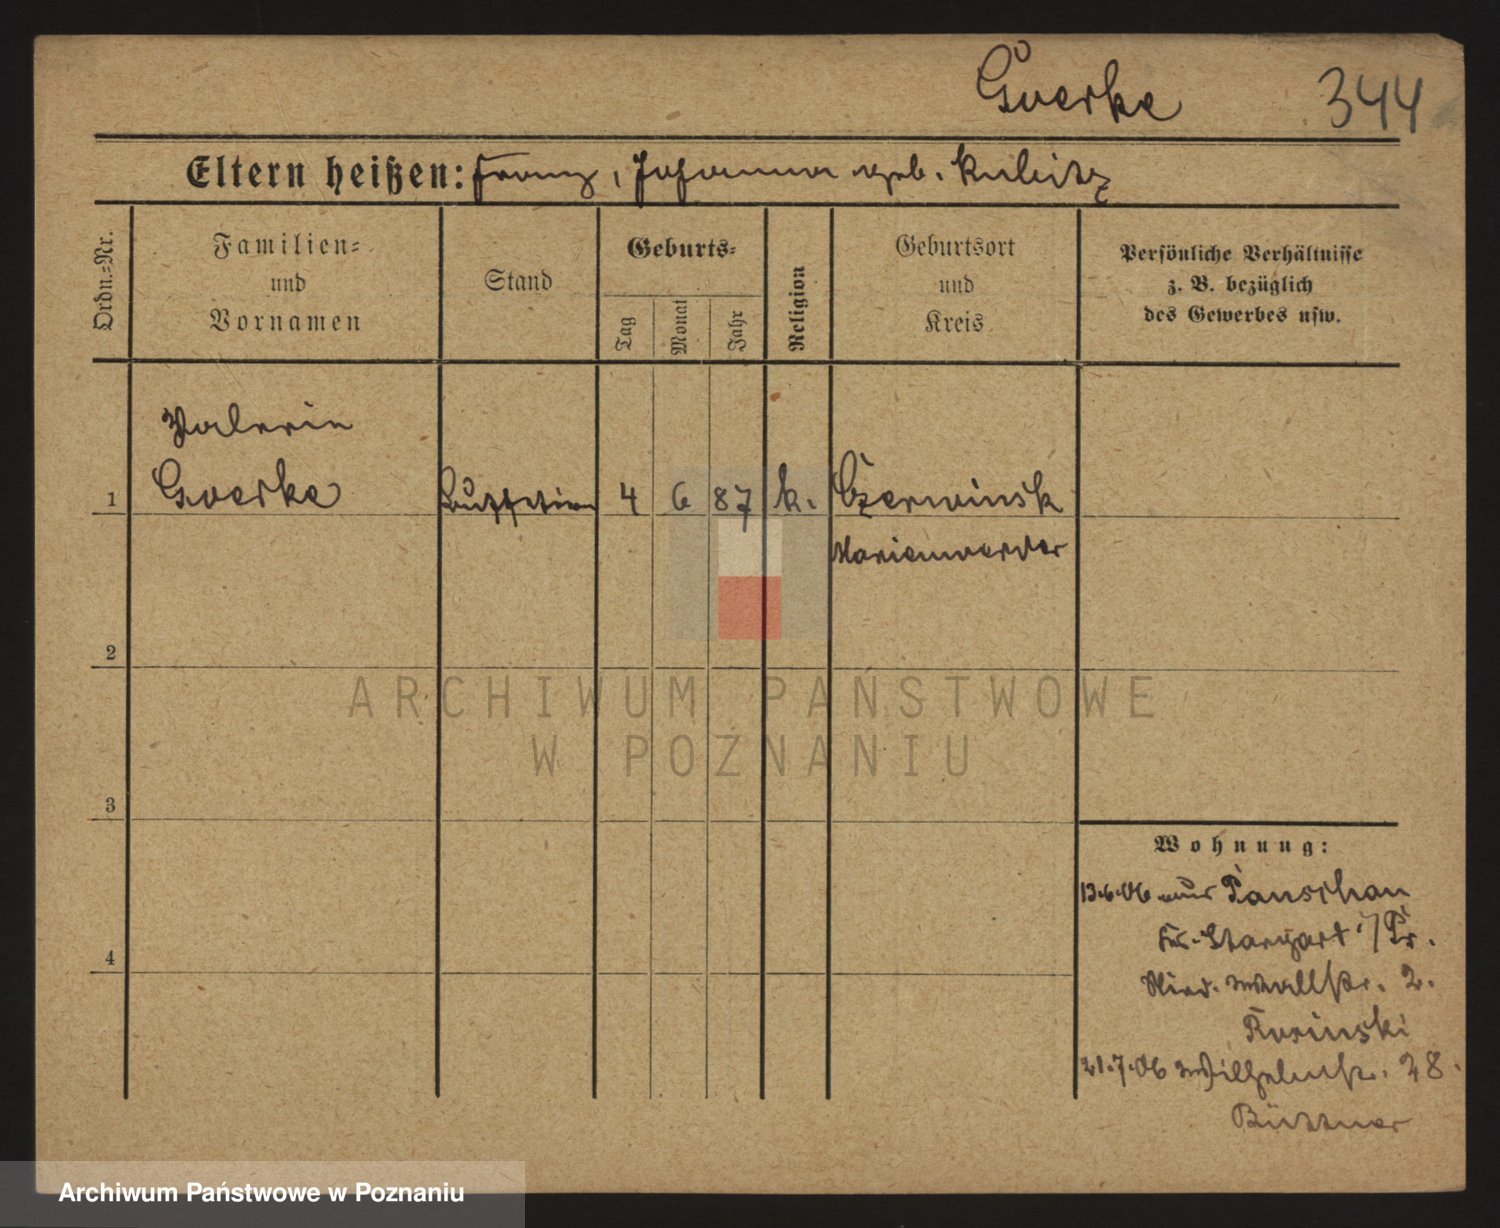 Goerke 344
Eltern heißen: Franz, Johanna geb. Kubitz
Ordn.=Nr.
Familien=
und
Vornamen
Stand
Geburts=
Tag
Monat
Jahr
Religion
Geburtsort
und
Kreis
Persönliche Verhältnisse
z. B. bezüglich
des Gewerbes usw.
Valerie
1 Goerke Buffetiere 4 6 87 k. Czerwinsk
Marienwerder
2
ARCHIWUM PAŃSTWOWE
W POZNANIU
3
Wohnung:
13.6.06 aus
Pr. Stargart i/Pr.
Wallstr. 2.
Rosinski
4
21.7.06 Wilhelmstr. 28.
Büttner
Archiwum Państwowe w Poznaniu